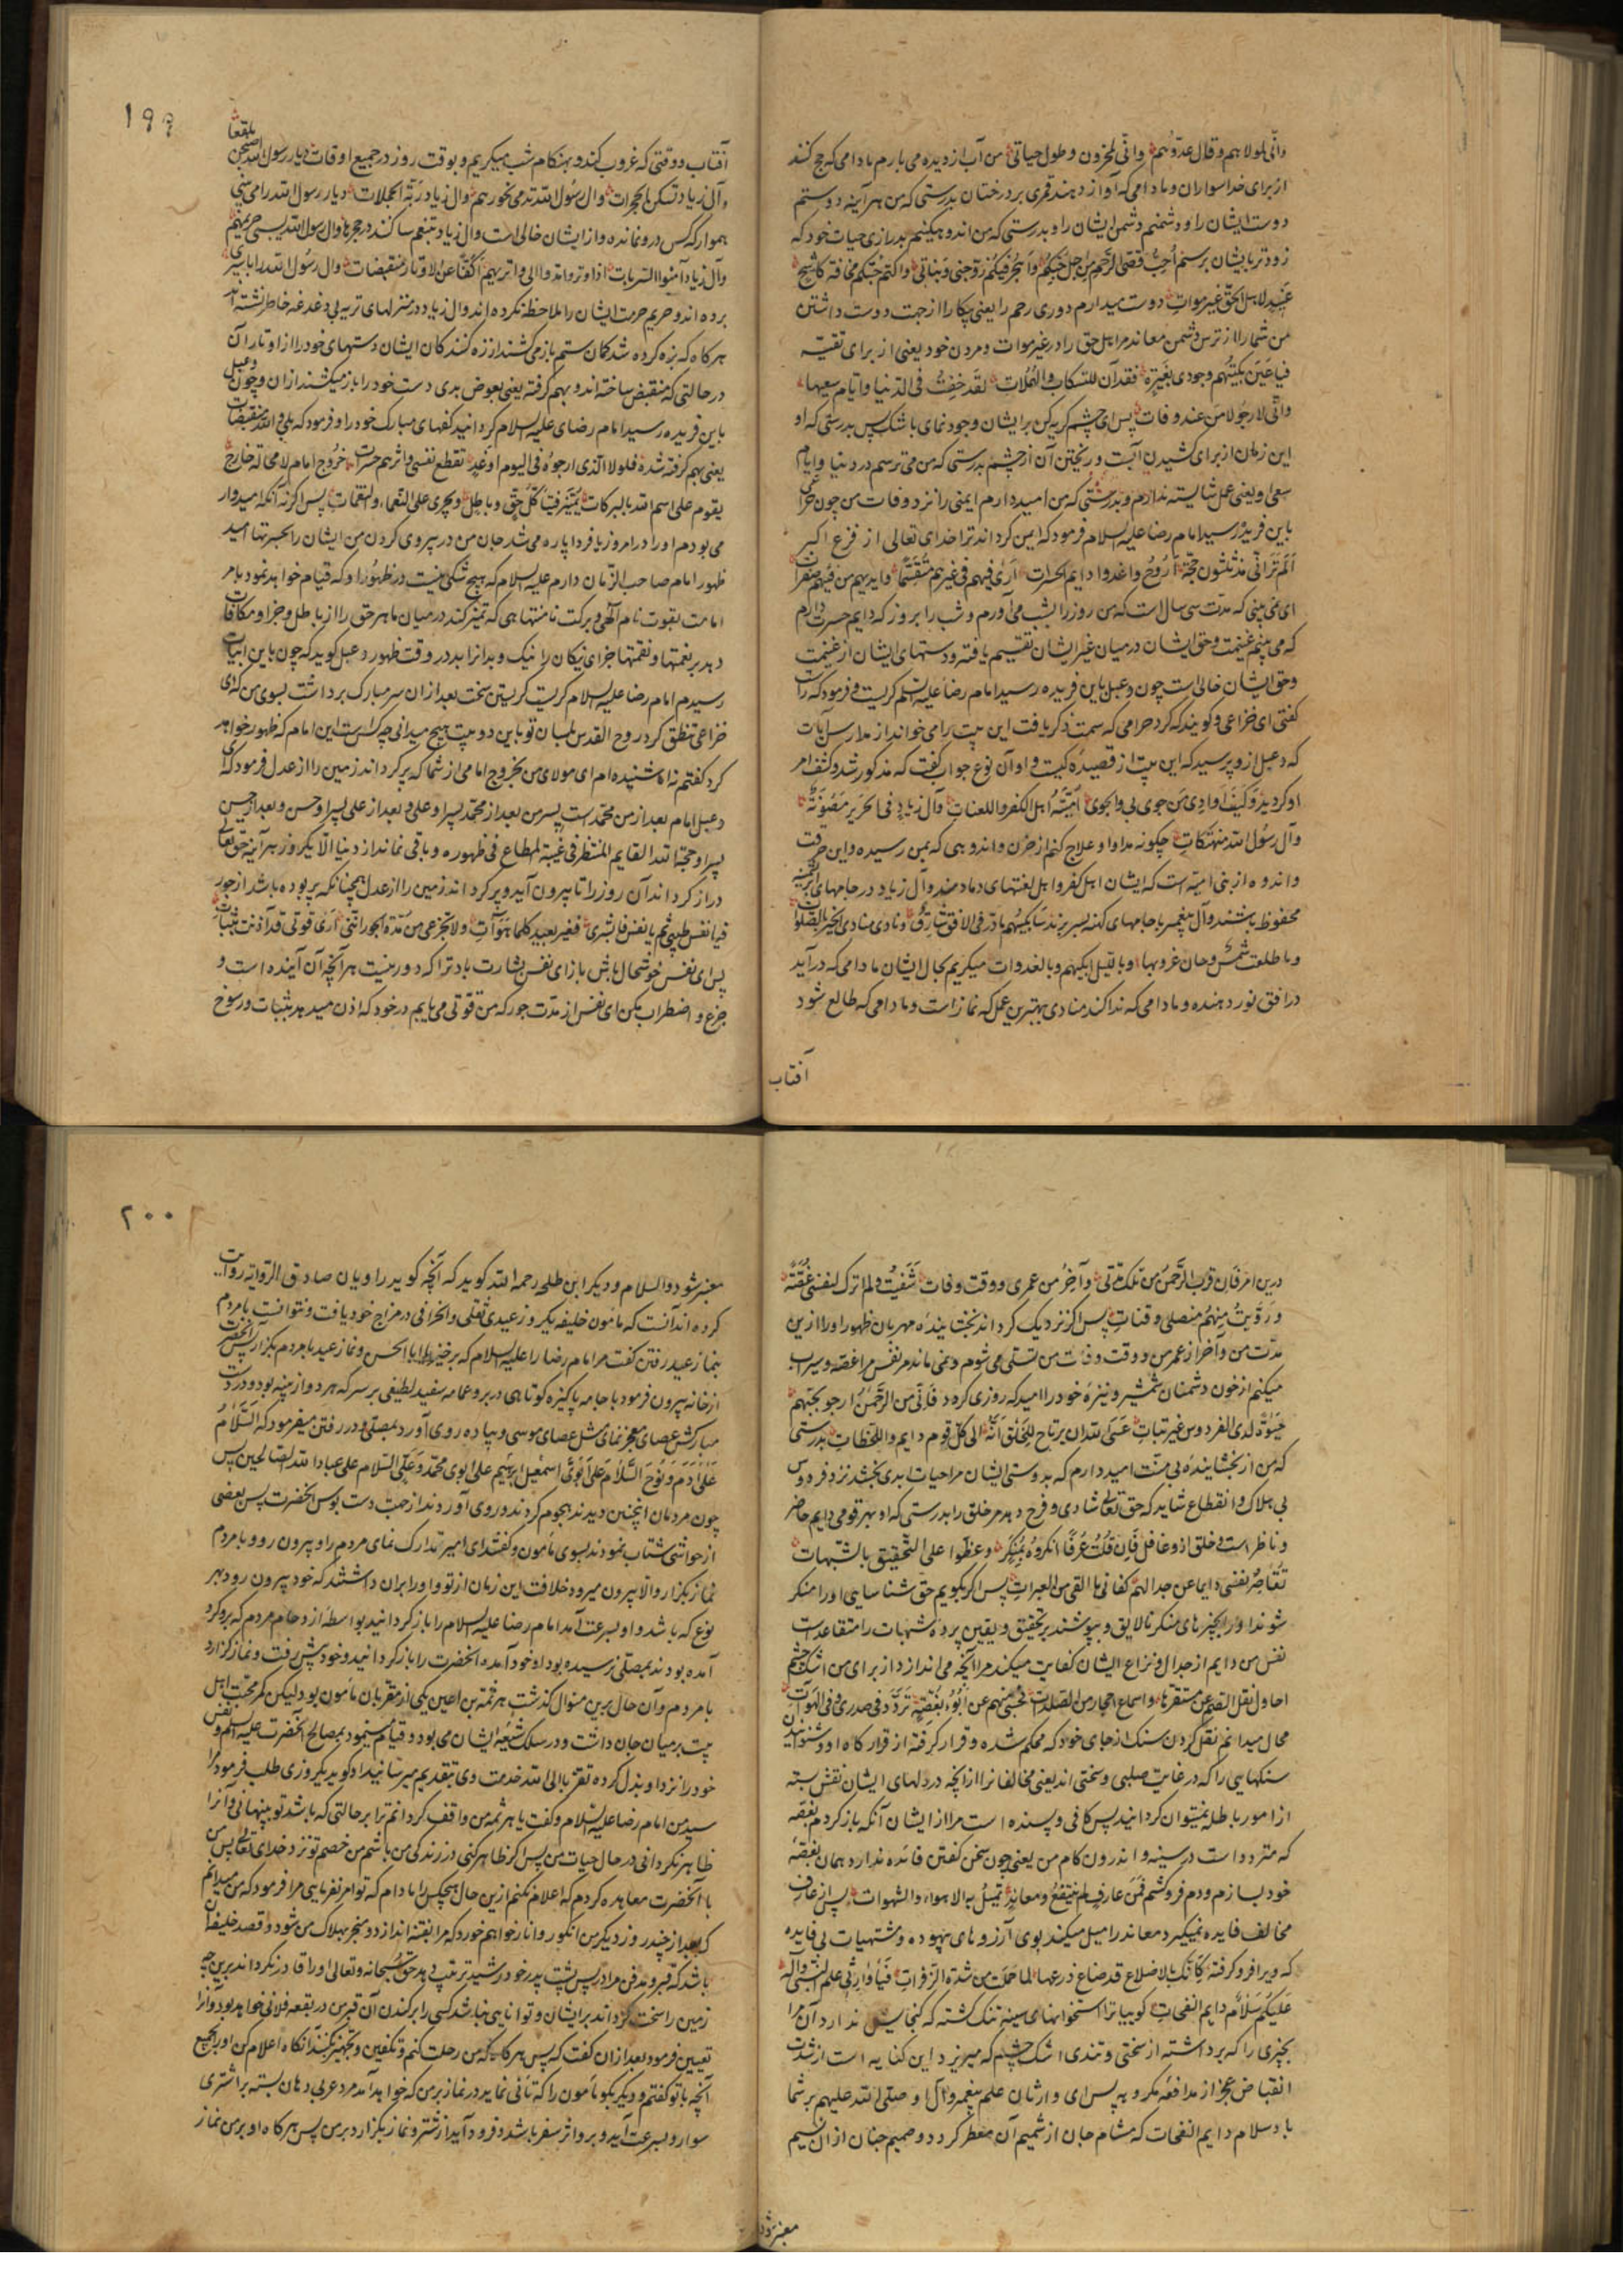 وانّی لمولاهم وقال عدوّهم وانّی لمحزون وطول حیاتی من آب از دیده می بارم مادامی که حج کنند
از برای خدا سواران و مادامی که آواز دهند قمری بر درختان بدرستی که من هر آینه دوستم
دوست ایشان را و دشمنم دشمن ایشان را و بدرستی که من اندوهگینم بدرازی حیات خود که
من شما را از ترس دشمن معاند مر اهل حق را در غیر موات و مردن خود یعنی از برای تقیه
فیاعین بکیهم وجودی بعبرة فقد آن للتسکاب والهملات لقد خفت فی الدنیا وایام سعیها
وانّی لارجو الامن عند وفات پس ای چشم گریه کن بر ایشان وجود نمای باشک پس بدرستی که او
این زمان از برای کشیدن آبست و ریختن آن از چشم بدرستی که من می ترسم در دنیا وایام
سعی او یعنی عمل شایسته ندارم و بدرستی که من امید دارم ایمنی را نزد وفات من چون خزاعی
باین فریده رسید امام رضا علیه السلام فرمود که ایمن گرداند ترا خدای تعالی از فزع اکبر
الم تر انّی مذ ثلثون حجّة اروح واغدوا دایم الحسرات اری فیهم فی غیرهم متقسما وایدیهم من فیهم صفرات
ای نمی بینی که مدت سی سال است که من روز را بشب می آورم و شب را بروز که دایم حسرت دارم
که می بینم غنیمت و حق ایشان در میان غیر ایشان تقسیم یافته و دستهای ایشان از غنیمت
وحق ایشان خالی است چون دعبل باین فریده رسید امام رضا علیه السلم گریست و فرمود که راست
گفتی ای خزاعی و گویند که گرد حرامی که سمت ذکر یافت این بیت را می خواند از مدارس آیات
که دعبل از و پرسید که این بیت از قصیده کیست و او آن نوع جواب گفت که مذکور شد و کشف امر
وآل رسول الله منهتکات چگونه مداوا و علاج کنم از حزن و اندوهی که بمن رسیده و این حرقت
واندوه از بنی امیه است که ایشان اهل کفر و اهل لعنتهای دمادمند و آل زیاد در جامهای ابریشمینه
محفوظ باشند و آل پیغمبر با جامهای کهنه بسر برند سابکیهم ما ذرّ فی الافق شارق ونادی منادی الخیر بالصلوات
وما طلعت شمس وحان غروبها وباللیل ابکیهم وبالغدوات میگریم بحال ایشان مادامی که درآید
در افق نور دهنده و مادامی که ندا کند منادی بهترین عمل که نماز است و مادامی که طالع شود
آفتاب
۱۹۹
آفتاب و وقتی که غروب کند و بهنگام شب میگریم و بوقت روز در جمیع اوقات دیار رسول الله اصبحن بلقعا
وآل زیاد تسکن الحجرات وآل رسول الله تدمی نحورهم وآل زیاد ربّة الحجلات دیار رسول الله را می بینی
هموار که کس درو نمانده و از ایشان خالی است وآل زیاد بتنعم ساکنند در حجرها وآل رسول الله یسبی حریمهم
وآل زیاد آمنوا السربات اذا وتروا مدوا الی واتریهم اکفّا عن الاوتار منقبضات وآل رسول الله را باسیری
برده اند و حریم حرمت ایشان را ملاحظه نکرده اند وآل زیاد در منزلهای تربه بی دغدغه خاطر نشسته اند
هر گاه که بزه کرده شد کمان ستم باز می کشند از زه کنندگان ایشان دستهای خود را از اوتار آن
در حالتی که منقبض ساخته اند و بهم گرفته یعنی بعوض بدی دست خود را باز میکشند از ان و چون دعبل
باین فریده رسید امام رضای علیه السلام گردانید کفهای مبارک خود را و فرمود که بلی والله منقبضات
یعنی بهم گرفته شده فلولا الذی ارجوه فی الیوم اوغد تقطع نفسی واثرهم حسرات خروج امام لامحالة خارج
یقوم علی اسم الله بالبرکات یمیّز فینا کلّ حقّ وباطل ویجزی علی النعماء والنقمات پس اگر نه آنکه امیدوار
می بودم او را در امروز یا فردا پاره می شد جان من در پیروی کردن من ایشان را بحسرتها امید
ظهور امام صاحب الزمان دارم علیه السلام که هیچ شکی نیست در ظهور او که قیام خواهد نمود بامر
امامت بقوت نام آلهی و برکت نامتناهی که تمیز کند در میان ما هر حق را از باطل و جزا و مکافات
دهد بر نعمتها و نقمتها جزای نیکان را نیک و بدان را بد در وقت ظهور دعبل گوید که چون باین ابیات
رسیدم امام رضا علیه السلام گریست گریستن سخت بعد از ان سر مبارک برداشت بسوی من که ای
خزاعی تنطق کرد روح القدس بلسان تو باین دو بیت هیچ میدانی چه کس است این امام که ظهور خواهد
کرد گفتم نه اما شنیده ام ای مولای من بخروج امامی از شما که پر گرداند زمین را از عدل فرمود که ای
دعبل امام بعد از من محمد است پسر من بعد از محمد پسر او علی و بعد از علی پسر او حسن و بعد از حسن
پسر او حجة الله القایم المنتظر فی غیبته المطاع فی ظهوره و باقی نماند از دنیا الا یک روز هر آینه حق تعالی
دراز گرداند آن روز را تا بیرون آید و پر گرداند زمین را از عدل همچنانکه پر بوده باشد از جور
فیا نفس طیبی ثم یا نفس فابشری فغیر بعید کلما هو آت ولا تجزعی من مدة الجور اننی اری قوتی قد آذنت بثبات
پس ای نفس خوشحال باش باز ای نفس بشارت باد ترا که دور نیست هر آنچه آن آینده است و
جزع و اضطراب مکن ای نفس از مدت جور که من قوتی می یابم در خود که اذن میدهد بثبات و رسوخ
درین امر فان قرّب الرحمن من تلک مدتی وآخر من عمری ووقت وفات شفیت ولم اترک لنفسی غصّة
وروّیت منهم منصلی وقنات پس اگر نزدیک گرداند بخشاینده مهربان ظهور او را ازین
مدت من وآخر از عمر من و وقت وفات من تسلی می شوم و نمی ماندم نفس مرا غصه و سیراب
میکنم از خون دشمنان شمشیر و نیزه خود را امید که روزی گردد فانّی من الرحمن ارجو بحبهم
حیوة لدی الفردوس غیر تبات عسی الله ان یرتاح للخلق انّه الی کلّ قوم دایم واللحظات بدرستی
که من از بخشاینده بی منت امید دارم که بدوستی ایشان مرا حیات ابدی بخشد نزد فردوس
بی هلاک و انقطاع شاید که حق تعالی شادی و فرح دهد مر خلق را بدرستی که او بهر قومی دایم حاضر
وناظر است و خلق ازو غافل فان قلت عرفا انکروه بمنکر وغطّوا علی التحقیق بالشبهات
تقاصر نفسی دایما عن جدالهم کفانی ما القی من العبرات پس اگر بگویم حق شناسایی او را منکر
شوند او را بچیزهای منکر نالایق و بپوشند بر تحقیق و یقین پرده شبهات را متقاعد است
نفس من دایم از جدال و نزاع ایشان کفایت میکند مرا آنچه می اندازد از برای من اشک چشم
احاول نقل الصم عن مستقرها واسماع احجار من الصلدات فحسبی منهم عن ابوء بغصّة تردّد فی صدری وفی الهوات
محال میدانم نقل کردن سنگ از جای خود که محکم شده و قرار گرفته از قرارگاه او و شنوانیدن
سنگهایی را که در غایت صلبی و سختی اند یعنی مخالفانرا از آنچه در دلهای ایشان نقش بسته
از امور باطله نمیتوان گردانید پس کافی و بسنده است مرا از ایشان آنکه باز گردم بغصه
که متردد است در سینه و اندرون کام من یعنی چون سخن گفتن فائده ندارد همان بغصه
خود بسازم و دم فرو کشم فمن عارف لم ینتفع ومعاند تمیل به الاهواء والشهوات پس از عارف
مخالف فایده نمیگیرد معاند را میل میکند بوی آرزوهای بیهوده و مشتهیات بی فایده
که ویرا فرو گرفته کانّک بالاضلاع قد ضاع ذرعها لما حملت من شدة الزفرات فیا وارثی علم النبی وآله
علیکم سلام دایم النفحات گوییا ترا استخوانهای سینه تنگ گشته که گنجایش ندارد آن مرا
بچیزی را که برداشته از سختی و تندی اشک چشم که میریزد این کنایه است از شدت
انقباض عجز از مدافعه مکروه پس ای وارثان علم پیغمبر وآل او صلی الله علیهم بر شما
باد سلام دایم النفحات که مشام جان از شمیم آن معطر گردد و صمیم جنان از ان نسیم
معنبر شود
۲۰۰
معنبر شود والسلام و دیگر ابن طلحه رحمه الله گوید که آنچه گوید راویان صادق الروایه روایت
کرده اند آنست که مأمون خلیفه یکروز عیدی ثقلی و انحرافی در مزاج خود یافت و نتوانست بامردم
بنماز عید رفتن گفت مر امام رضا را علیه السلام که بر خیز یا ابا الحسن و نماز عید با مردم بگزار پس آنحضرت
از خانه بیرون فرمود با جامه پاکیزه کوتاهی در بر و عمامه سفید لطیفی بر سر که هر دو از پنبه بود و در دست
مبارکش عصای معجز نمای مثل عصای موسی و پیاده روی آورد بمصلی و در رفتن میفرمود که السلام
علی آدم ونوح السلام علی ابوی اسمعیل ابراهیم علی ابوی محمد وعلی السلام علی عباد الله الصالحین پس
چون مردمان اینچنین دیدند هجوم کردند و روی آوردند از جهت دست بوس آنحضرت پس بعضی
از حواشی شتاب نمودند بسوی مأمون و گفتند ای امیر تدارک نمای مردم را و بیرون رو و با مردم
نماز بگزار والا بیرون میرود خلافت این زمان از تو و او را بران داشتند که خود بیرون رود بهر
نوع که باشد و او بسرعت آمد امام رضا علیه السلام را باز گردانید بواسطه ازدحام مردم که برو گرد
آمده بودند بمصلی نرسیده بود او خود آمده آنحضرت را باز گردانید و خود پیش رفت و نماز گزارد
با مردم و آن حال برین منوال گذشت هرثمة بن اعین یکی از مقربان مأمون بود لیکن کمر محبت اهل
بیت بر میان جان داشت و در سلک شیعه ایشان می بود و قیام مینمود بمصالح آنحضرت علیه السلم و نفس
خود را نزد او بذل کرده تقربا الی الله خدمت وی بتقدیم میرسانید او گوید یکروزی طلب فرمود مرا
سید من امام رضا علیه السلام و گفت یا هرثمه من واقف گردانم ترا بر حالتی که باشد تو بپنهانی و آنرا
ظاهر نگردانی در حال حیات من پس اگر ظاهر کنی در زندگی من باشم من خصم تو نزد خدای تعالی پس من
با آنحضرت معاهده کردم که اعلام نکنم ازین حال هیچکس را مادام که تو امر نفرمایی مرا فرمود که من میدانم
که بعد از چند روز دیگر من انگور و انار خواهم خورد که مرا بفتنه اندازد و منجر بهلاک من شود و قصد خلیفه آن
باشد که قبر و مدفن مرا در پس پشت پدر خود رشید ترتیب دهد حق سبحانه وتعالی او را قادر نگرداند برین چه
زمین را سخت گرداند بر ایشان و توانایی نباشد کسی را بر کندن آن قبر من در بقعه فلانی خواهد بود و آنرا
تعیین فرمود بعد از ان گفت که پس هر گاه که من رحلت کنم و تکفین و تجهیز بکنند آنگاه اعلام کن او را بجمیع
آنچه با تو گفتم و دیگر بگو مأمون را که تانی نماید در نماز بر من که خواهد آمد مرد عربی دهان بسته بر اشتری
سوار و بسرعت آید و برو اثر سفر باشد و فرود آید از شتر و نماز بگزارد بر من پس هر گاه او بر من نماز